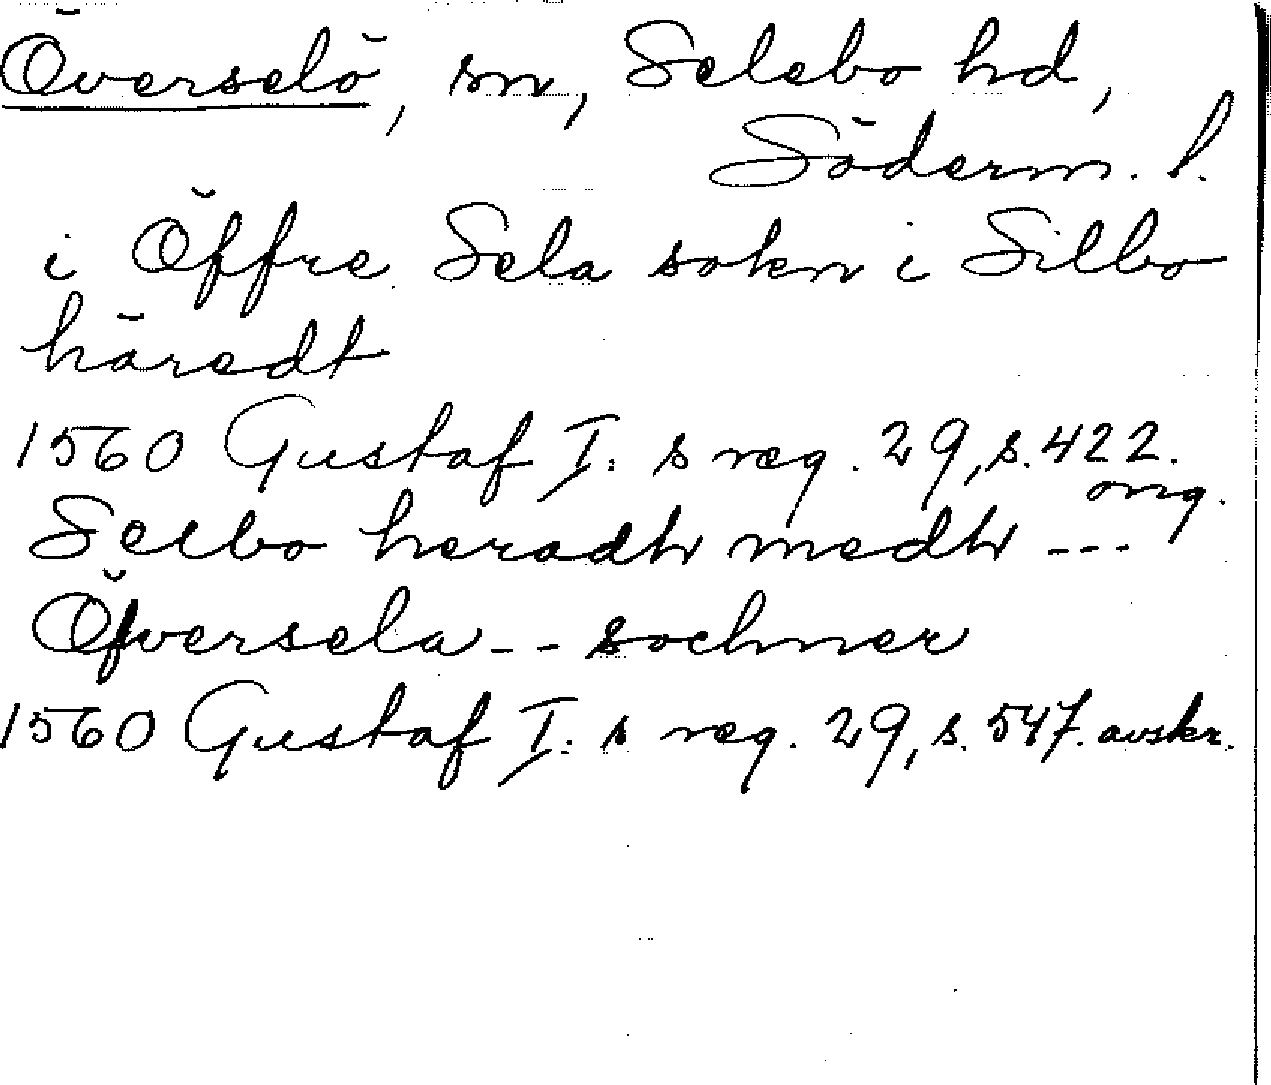 Överselö, sn, Selebo hd,
Söderm. l.
i Öffre Sela sokn i Silbo
häredt
1560 Gustaf I:s reg. 29, s. 422.
orig.
Seelbo heradh medh ---
Öfversela -- sochner
1560 Gustaf I:s reg. 29, s. 547. avskr.